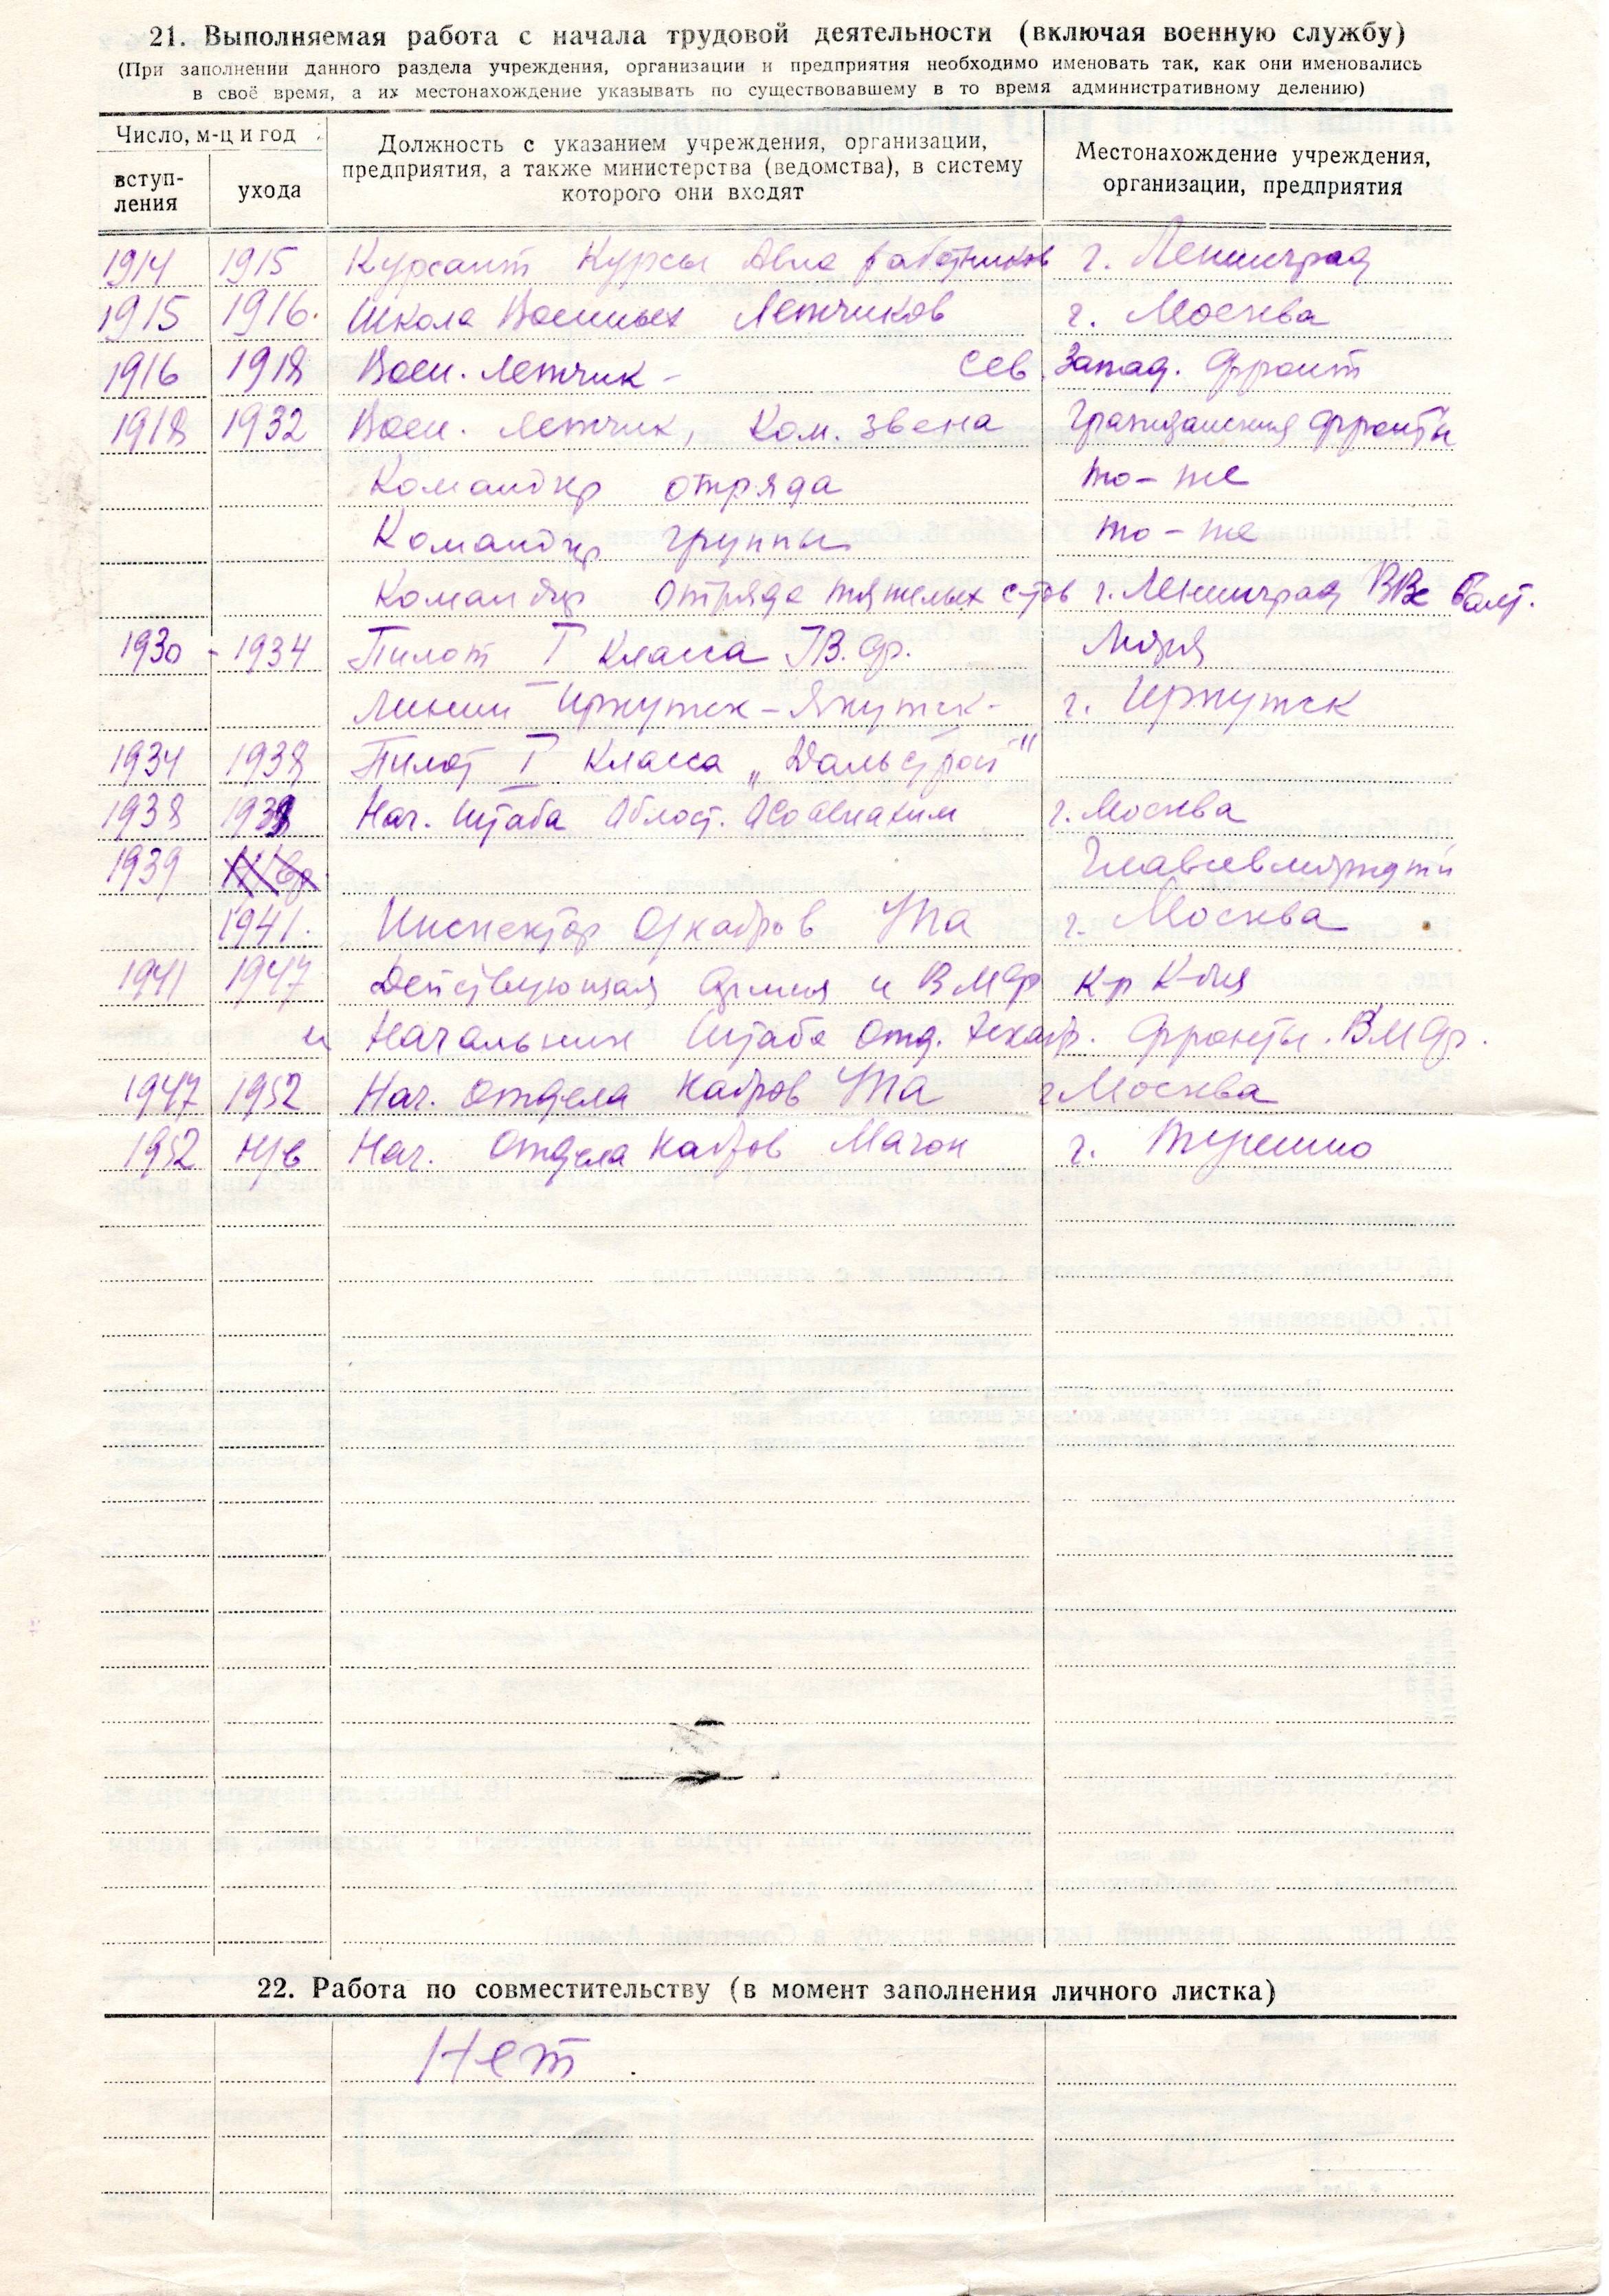 21. Выполняемая работа с начала трудовой деятельности (включая военную службу)
(При заполнении данного раздела учреждения, организации и предприятия необходимо именовать так, как они именовались
в своё время, а их местонахождение указывать по существовавшему в то время административному делению)
Число, м-ц и год
вступ-
ления
ухода
Должность с указанием учреждения, организации,
предприятия, а также министерства (ведомства), в систему
которого они входят
Местонахождение учреждения,
организации, предприятия
1914 1915 Курсант Курсы Авиа работников г. Ленинград
1915 1916. Школа Военных Летчиков г. Москва
1916 1918 Воен. летчик - Сев. Запад. фронт
1918 1932 Воен. летчик, Ком. звена Гражданския фронты
Командир отряда то-же
Командир группы то-же
Командир отряда тяжелых с-тов г. Ленинград ВВС Балт.
1930 - 1934 Пилот I класса ГВ.Ф. Моря
линии Иркутск - Якутск - г. Иркутск
1934 1938 Пилот I класса „Дальстрой"
1938 1939 Нач. Штаба Област. Асоавиахим г. Москва
1939 Главсевморпути
1941. Инспектор О/кадров УПА г. Москва
1941 1947 Действующая армия и ВМФ
и Начальник Штаба Отд. фронты. ВМФ.
1947 1952 Нач. отдела кадров УПА г Москва
1952 Н/в Нач. Отдела кадров Магон г. Тушино
22. Работа по совместительству (в момент заполнения личного листка)
Нет.